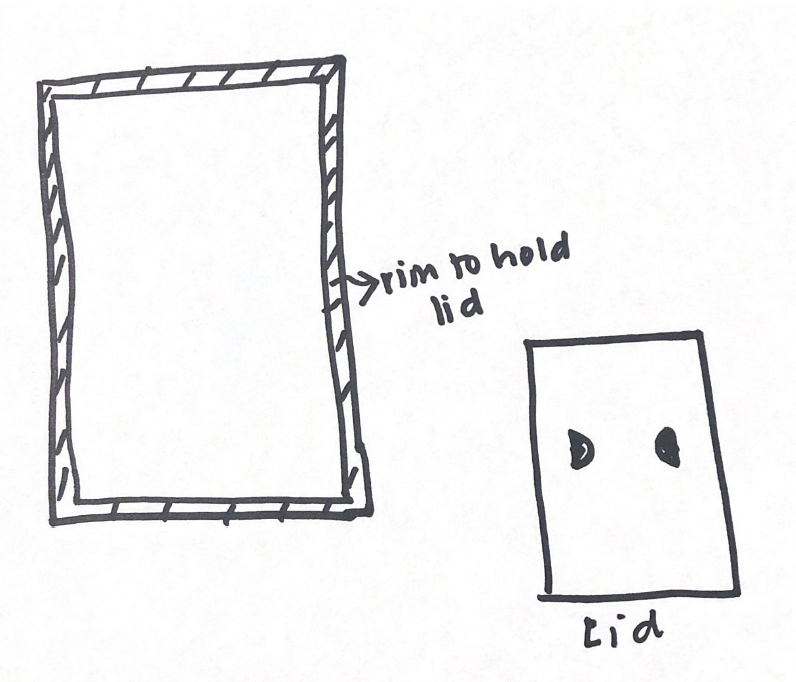 rim to hold
lid
Lid